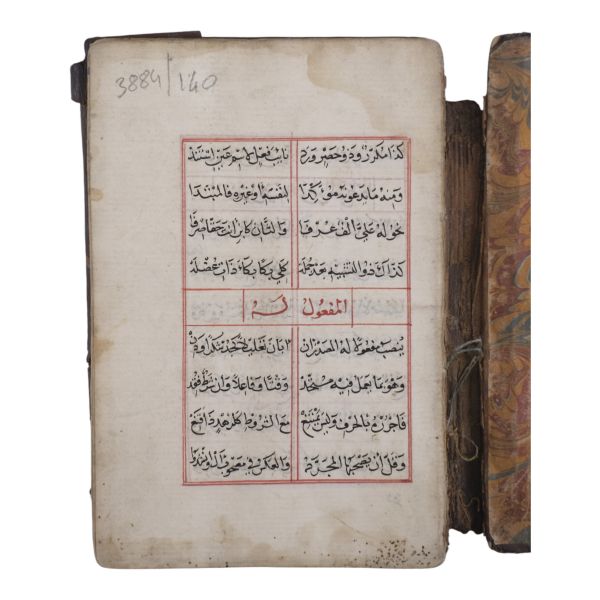 3884/140
كذا مكرر وذو حصر ورد نايب فعل لاسم عين استند
ومنه ما يدعونه موكدا لنفسه او غيره فالمبتدا
نحو له علي الف عرفا والثان كابني انت حقا صرفا
كذاك ذو التشبيه بعد جمله كلي بكا بكاء ذات عضله
المفعول له
ينصب مفعولا له المصدر ان ابان تعليلا كجد شكرا ودن
وهو بما يعمل فيه متحد وقتا وفاعلا وان شرط فقد
فاجرره بالحرف وليس يمتنع مع الشروط كلزهد ذا قنع
وقل ان يصحبها المجرد والعكس في مصحوب ال وانشدوا